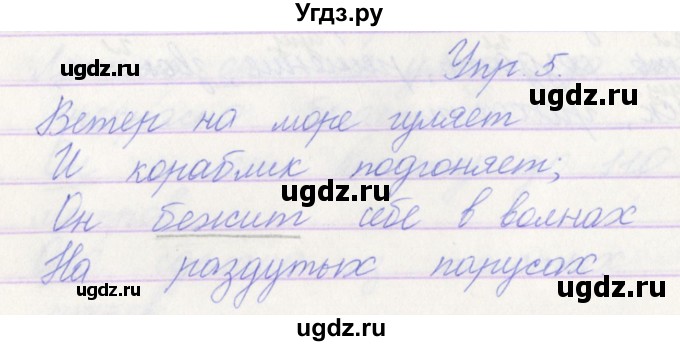 Угдз.ру
ugdz.ru ugdz.ru Упр. 5.
Ветер на море гуляет
И кораблик подгоняет;
Он бежит себе в волнах
На раздутых парусах
ugdz.ru ugdz.ru ugdz.ru
ugdz.ru
ugdz.ru
ugdz.ru
ugdz.ru